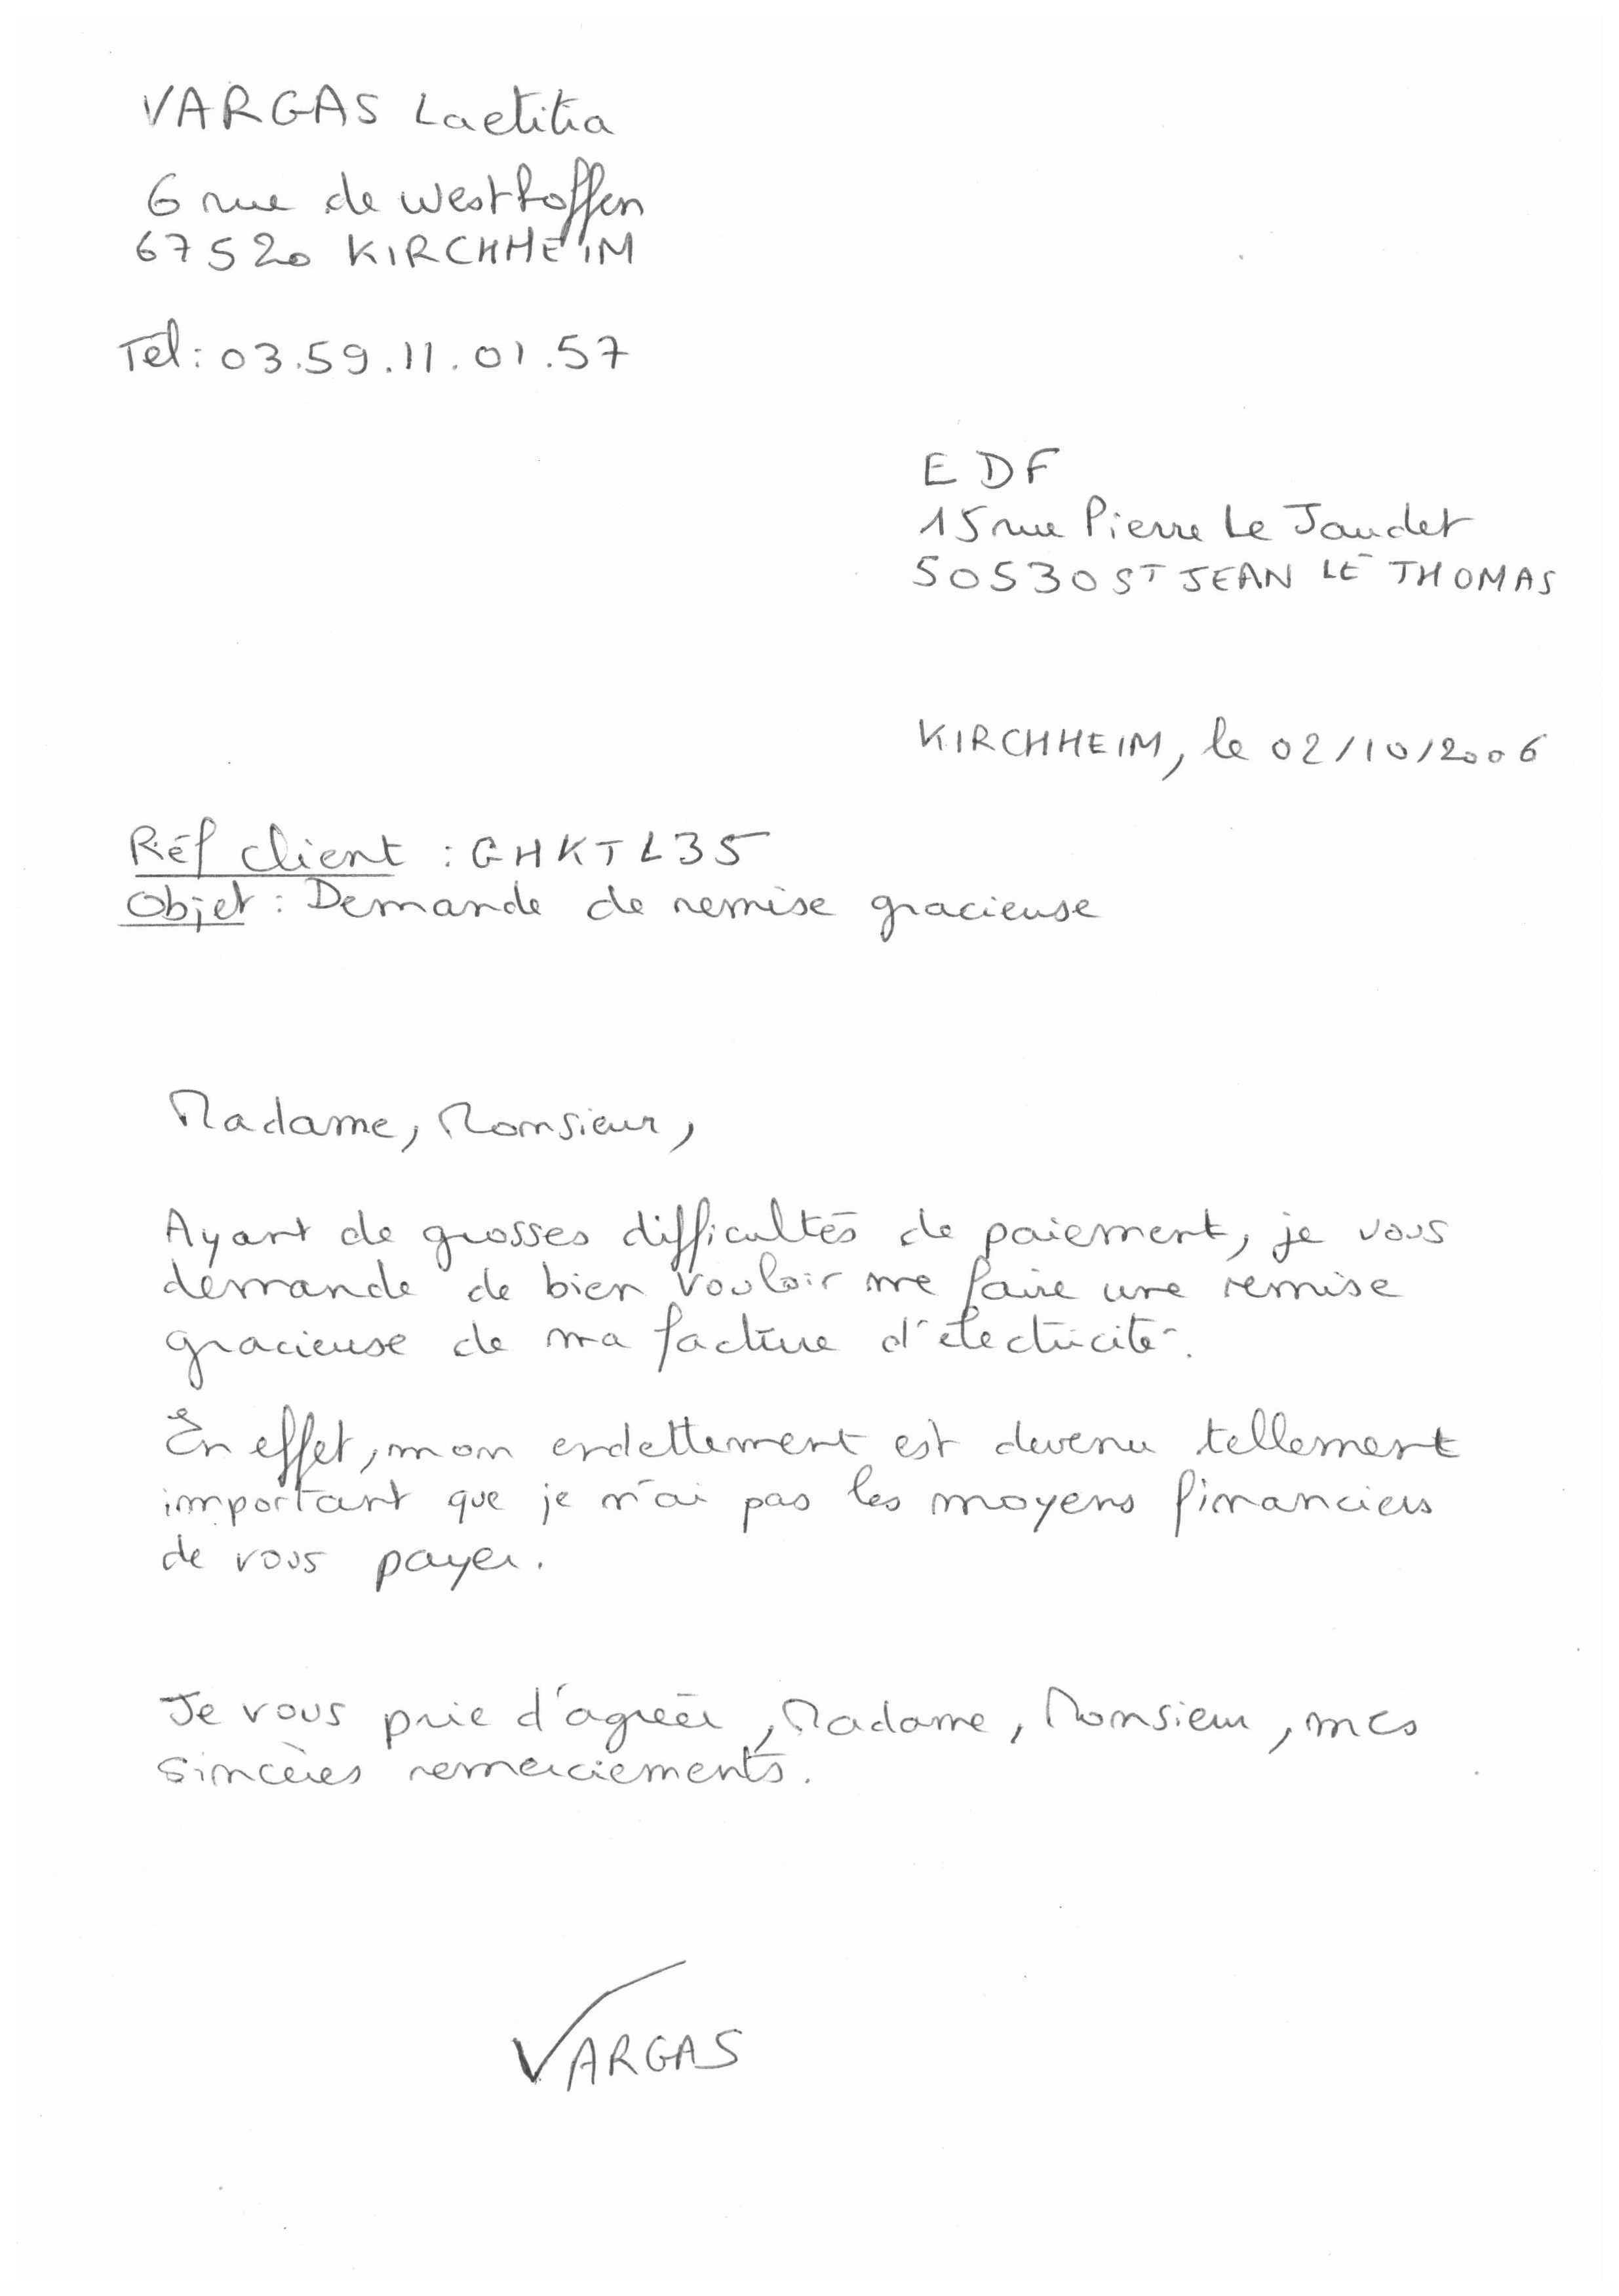 VARGAS Laetitia
6 rue de westhoffen
67520 KIRCHHEIM
Tél: 03.59.11.01.57
EDF
15 rue Pierre Le Jaudet
50530 ST JEAN LE THOMAS
KIRCHHEIM, le 02/10/2006
Réf client : GHKTL35
Objet : Demande de remise gracieuse
Madame, Monsieur,
Ayant de grosses difficultés de paiement, je vous
demande de bien vouloir me faire une remise
gracieuse de ma facture d'électricité.
En effet, mon endettement est devenu tellement
important que je n'ai pas les moyens financiers
de vous payer.
Je vous prie d'agréer, Madame, Monsieur, mes
sincères remerciements.
VARGAS